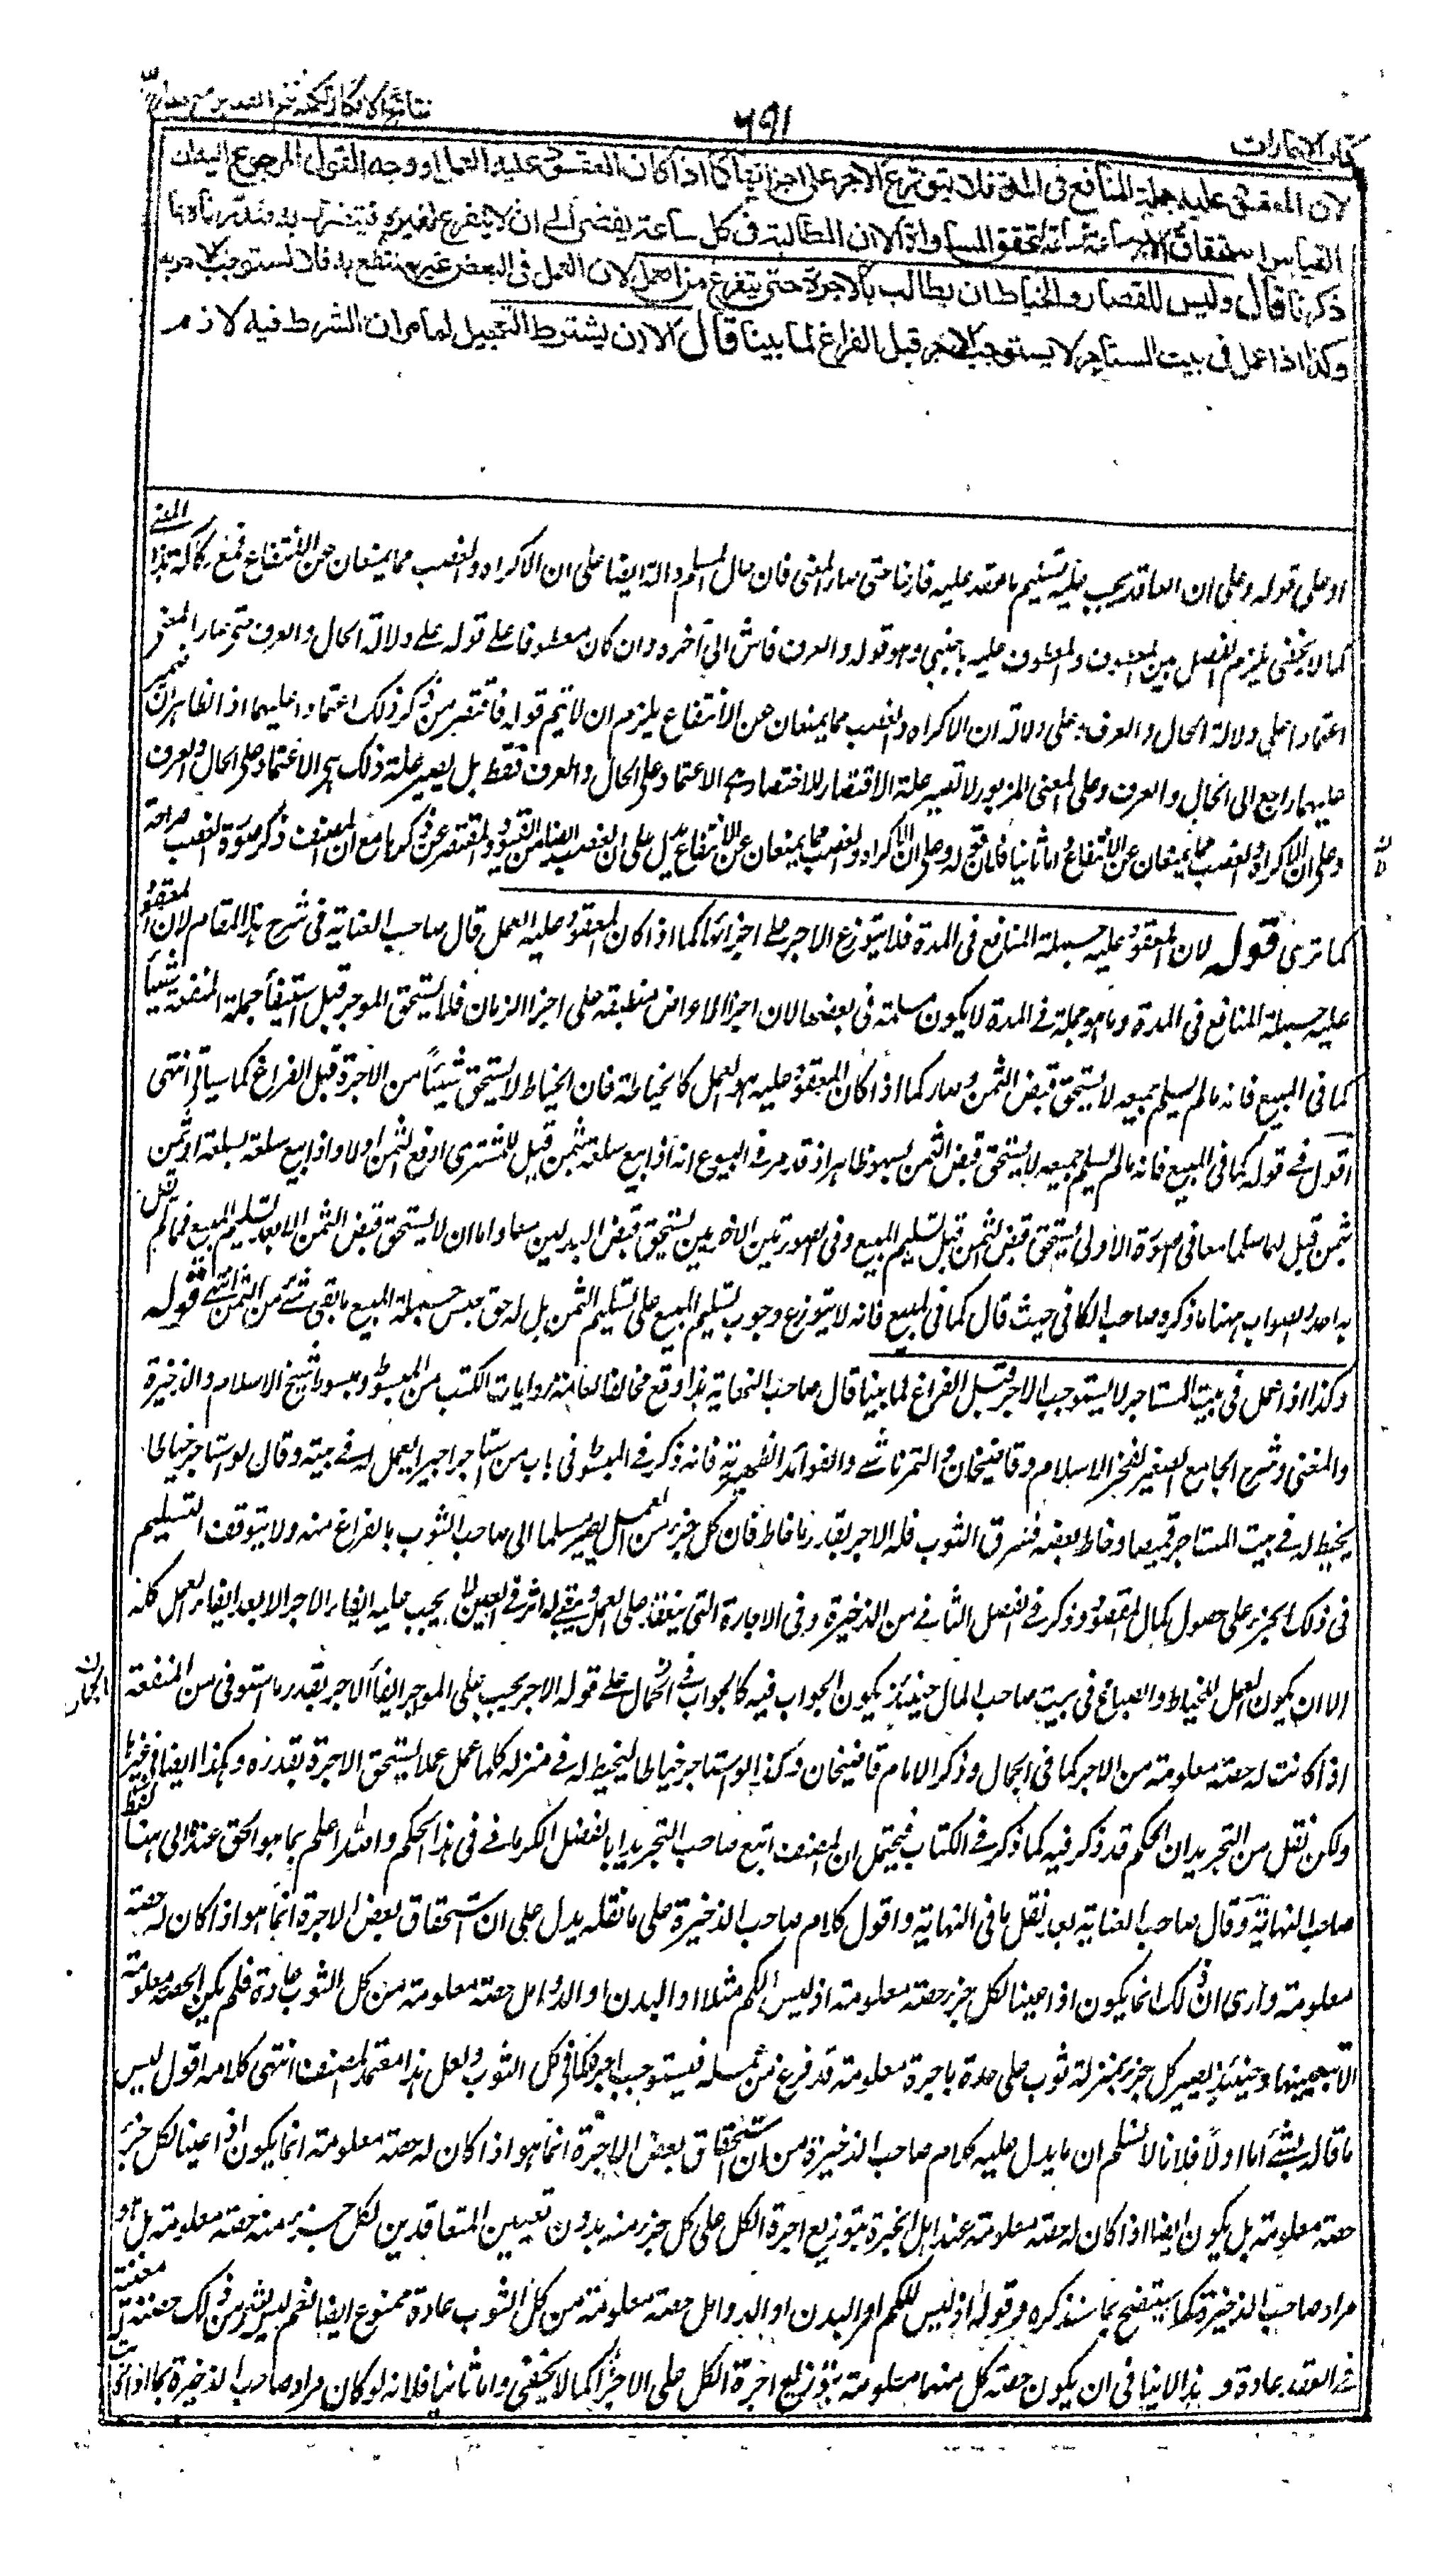 كتاب الاجارات
٦٩١
نتائج الافكار تكملة فتح القدير مع هداية
لان المعقود عليه جملة المنافع فى المدة فلا يتوزع الاجر على اجزائها كما اذا كان المعقود عليه العمل ووجه القول المرجوع اليه ان
القياس استحقاق الاجر ساعة فساعة لتحقق المساواة الا ان المطالبة فى كل ساعة يفضى الى ان لا يتفرغ لغيره فيتضرر به فقدرناه بما
ذكرنا قال وليس للقصار والخياط ان يطالب بالاجرة حتى يتفرغ من العمل لان العمل فى البعض غير منتفع به فلا يستوجب الاجر به
وكذا اذا عمل فى بيت المستاجر لا يستوجب الاجر قبل الفراغ لما بينا قال الا ان يشترط التعجيل لما مر ان الشرط فيه لازم
او على قوله وعلى ان العاقد يجب عليه تسليم ما عقد عليه فارغا حتى صار المعنى فان حال المسلم دالة ايضا على ان الاكراه والغصب مما يمنعان عن الانتفاع فمع ركاكة هذا المعنى
كما لا يخفى يلزم الفصل بين المعطوف والمعطوف عليه باجنبى وهو قوله والعرف فاش الى آخره وان كان معطوفا على قوله على دلالة الحال والعرف حتى صار المعنى
اعتمادا على دلالة الحال والعرف وعلى دلالة ان الاكراه والغصب مما يمنعان عن الانتفاع يلزم ان لا يتم قوله فاقتصر من ذكر ذلك اعتمادا عليهما اذ الظاهر ان ضمير
عليهما راجع الى الحال والعرف وعلى المعنى المزبور لا تصير علة الاقتصار للاختصار هى الاعتماد على الحال والعرف فقط بل يصير علة ذلك هى الاعتماد على الحال والعرف
وعلى ان الاكراه والغصب مما يمنعان عن الانتفاع واما ثانيا فلان قوله وعلى ان الاكراه والغصب مما يمنعان عن الانتفاع يدل على ان الغصب ايضا من القيود المقتصر عن ذكرها مع ان المصنف ذكر صورة الغصب صراحة
كما ترى قوله لان المعقود عليه جملة المنافع فى المدة فلا يتوزع الاجر على اجزائها كما اذا كان المعقود عليه العمل قال صاحب العناية فى شرح هذا المقام لان المعقود
عليه جملة المنافع فى المدة وما هو جملة فى المدة لا يكون مسلمة فى بعضها لان اجزاء الاعواض منطبقة على اجزاء الزمان فلا يستحق الموجر قبل استيفاء جملة المنفعة شيئا
كما فى المبيع فانه ما لم يسلم جميعه لا يستحق قبض الثمن وصار كما اذا كان المعقود عليه هو العمل كالخياطة فان الخياط لا يستحق شيئا من الاجرة قبل الفراغ كما سياتى انتهى
اقول فى قوله كما فى المبيع فانه ما لم يسلم جميعه لا يستحق قبض الثمن سهو ظاهر اذ قد مر فى البيوع انه اذا بيع سلعة بثمن قيل للمشترى ادفع الثمن اولا واذا بيع سلعة بسلعة او ثمن
بثمن قيل لهما سلما معا فى الصورة الاولى يستحق قبض الثمن قبل تسليم المبيع وفى الصورتين الاخريين يستحق قبض البدلين معا واما ان لا يستحق قبض الثمن الا بعد تسليم المبيع فمما لم يقل
به احد والصواب ههنا ما ذكره صاحب الكافى حيث قال كما فى المبيع فانه لا يتوزع وجوب تسليم المبيع على تسليم الثمن بل له حق حبس جملة المبيع ما بقى شئ من الثمن انتهى قوله
وكذا اذا عمل فى بيت المستاجر لا يستوجب الاجر قبل الفراغ لما بينا قال صاحب النهاية هذا وقع مخالفا لعامة روايات الكتب من المبسوط ومبسوط شيخ الاسلام والذخيرة
والمغنى وشرح الجامع الصغير لفخر الاسلام وقاضيخان والتمرتاشى والفوائد الظهيرية فانه ذكر فى المبسوط فى باب من استاجر اجيرا يعمل له فى بيته وقال لو استاجر خياطا
يخيط له فى بيت المستاجر قميصا وخاط بعضه فسرق الثوب فله الاجر بقدر ما خاط فان كل جزء من العمل يصير مسلما الى صاحب الثوب بالفراغ منه ولا يتوقف التسليم
فى ذلك الجزء على حصول كمال المقصود وذكر فى الفصل الثانى من الذخيرة وفى الاجارة التى ينعقد على العمل ويبقى له اثر فى العين لا يجب عليه ايفاء الاجر الا بعد ايفاء العمل كله
الا ان يكون العمل للخياط والصباغ فى بيت صاحب المال حينئذ يكون الجواب فيه كالجواب فى الحمال على قوله الاجر يجب على الموجر ايفاء الاجر بقدر ما استوفى من المنفعة
اذا كانت له حصة معلومة من الاجر كما فى الجمال وذكر الامام قاضيخان وكذا لو استاجر خياطا ليخيط له فى منزله كلما عمل عملا يستحق الاجرة بقدره وهكذا ايضا فى غيرها
ولكن نقل من التجريد ان الحكم قد ذكر فيه كما ذكر فى الكتاب فيحتمل ان المصنف اتبع صاحب التجريد ابا الفضل الكرمانى فى هذا الحكم والله اعلم بما هو الحق عنده الى هنا لفظ
صاحب النهاية وقال صاحب العناية بعد نقل ما فى النهاية واقول كلام صاحب الذخيرة على ما نقله يدل على ان استحقاق بعض الاجرة انما هو اذا كان له حصة
معلومة وارى ان ذلك انما يكون اذا عينا لكل جزء حصة معلومة اذ ليس الكم مثلا او البدن او الدوامل حصة معلومة من كل الثوب عادة فلم يكن الحصة معلومة
الا بتعيينها وحينئذ يصير كل جزء بمنزلة ثوب على حدة باجرة معلومة قد فرغ من عمله فيستوجب اجره كما فى كل الثوب ولعل هذا معتمد المصنف انتهى كلامه اقول ليس
ما قاله بشئ اما اولا فلانا لا نسلم ان ما يدل عليه كلام صاحب الذخيرة من ان استحقاق بعض الاجرة انما هو اذا كان له حصة معلومة انما يكون اذا عينا لكل جزء
حصة معلومة بل يكون ايضا اذا كان له حصة معلومة عند اهل الخبرة بتوزيع اجرة الكل على كل جزء منه بدون تعيين المتعاقدين لكل جزء منه حصة معلومة بل هو
مراد صاحب الذخيرة كما سيتضح بما سنذكره وقوله اذ ليس للكم او البدن او الدوامل حصة معلومة من كل الثوب عادة ممنوع ايضا نعم ليس لشئ من ذلك حصة معينة
فى العقد عادة وهذا لا ينافى ان يكون حصة كل منهما معلومة بتوزيع اجرة الكل على الاجزاء كما لا يخفى واما ثانيا فلانه لو كان مراد صاحب الذخيرة بما اذا كانت